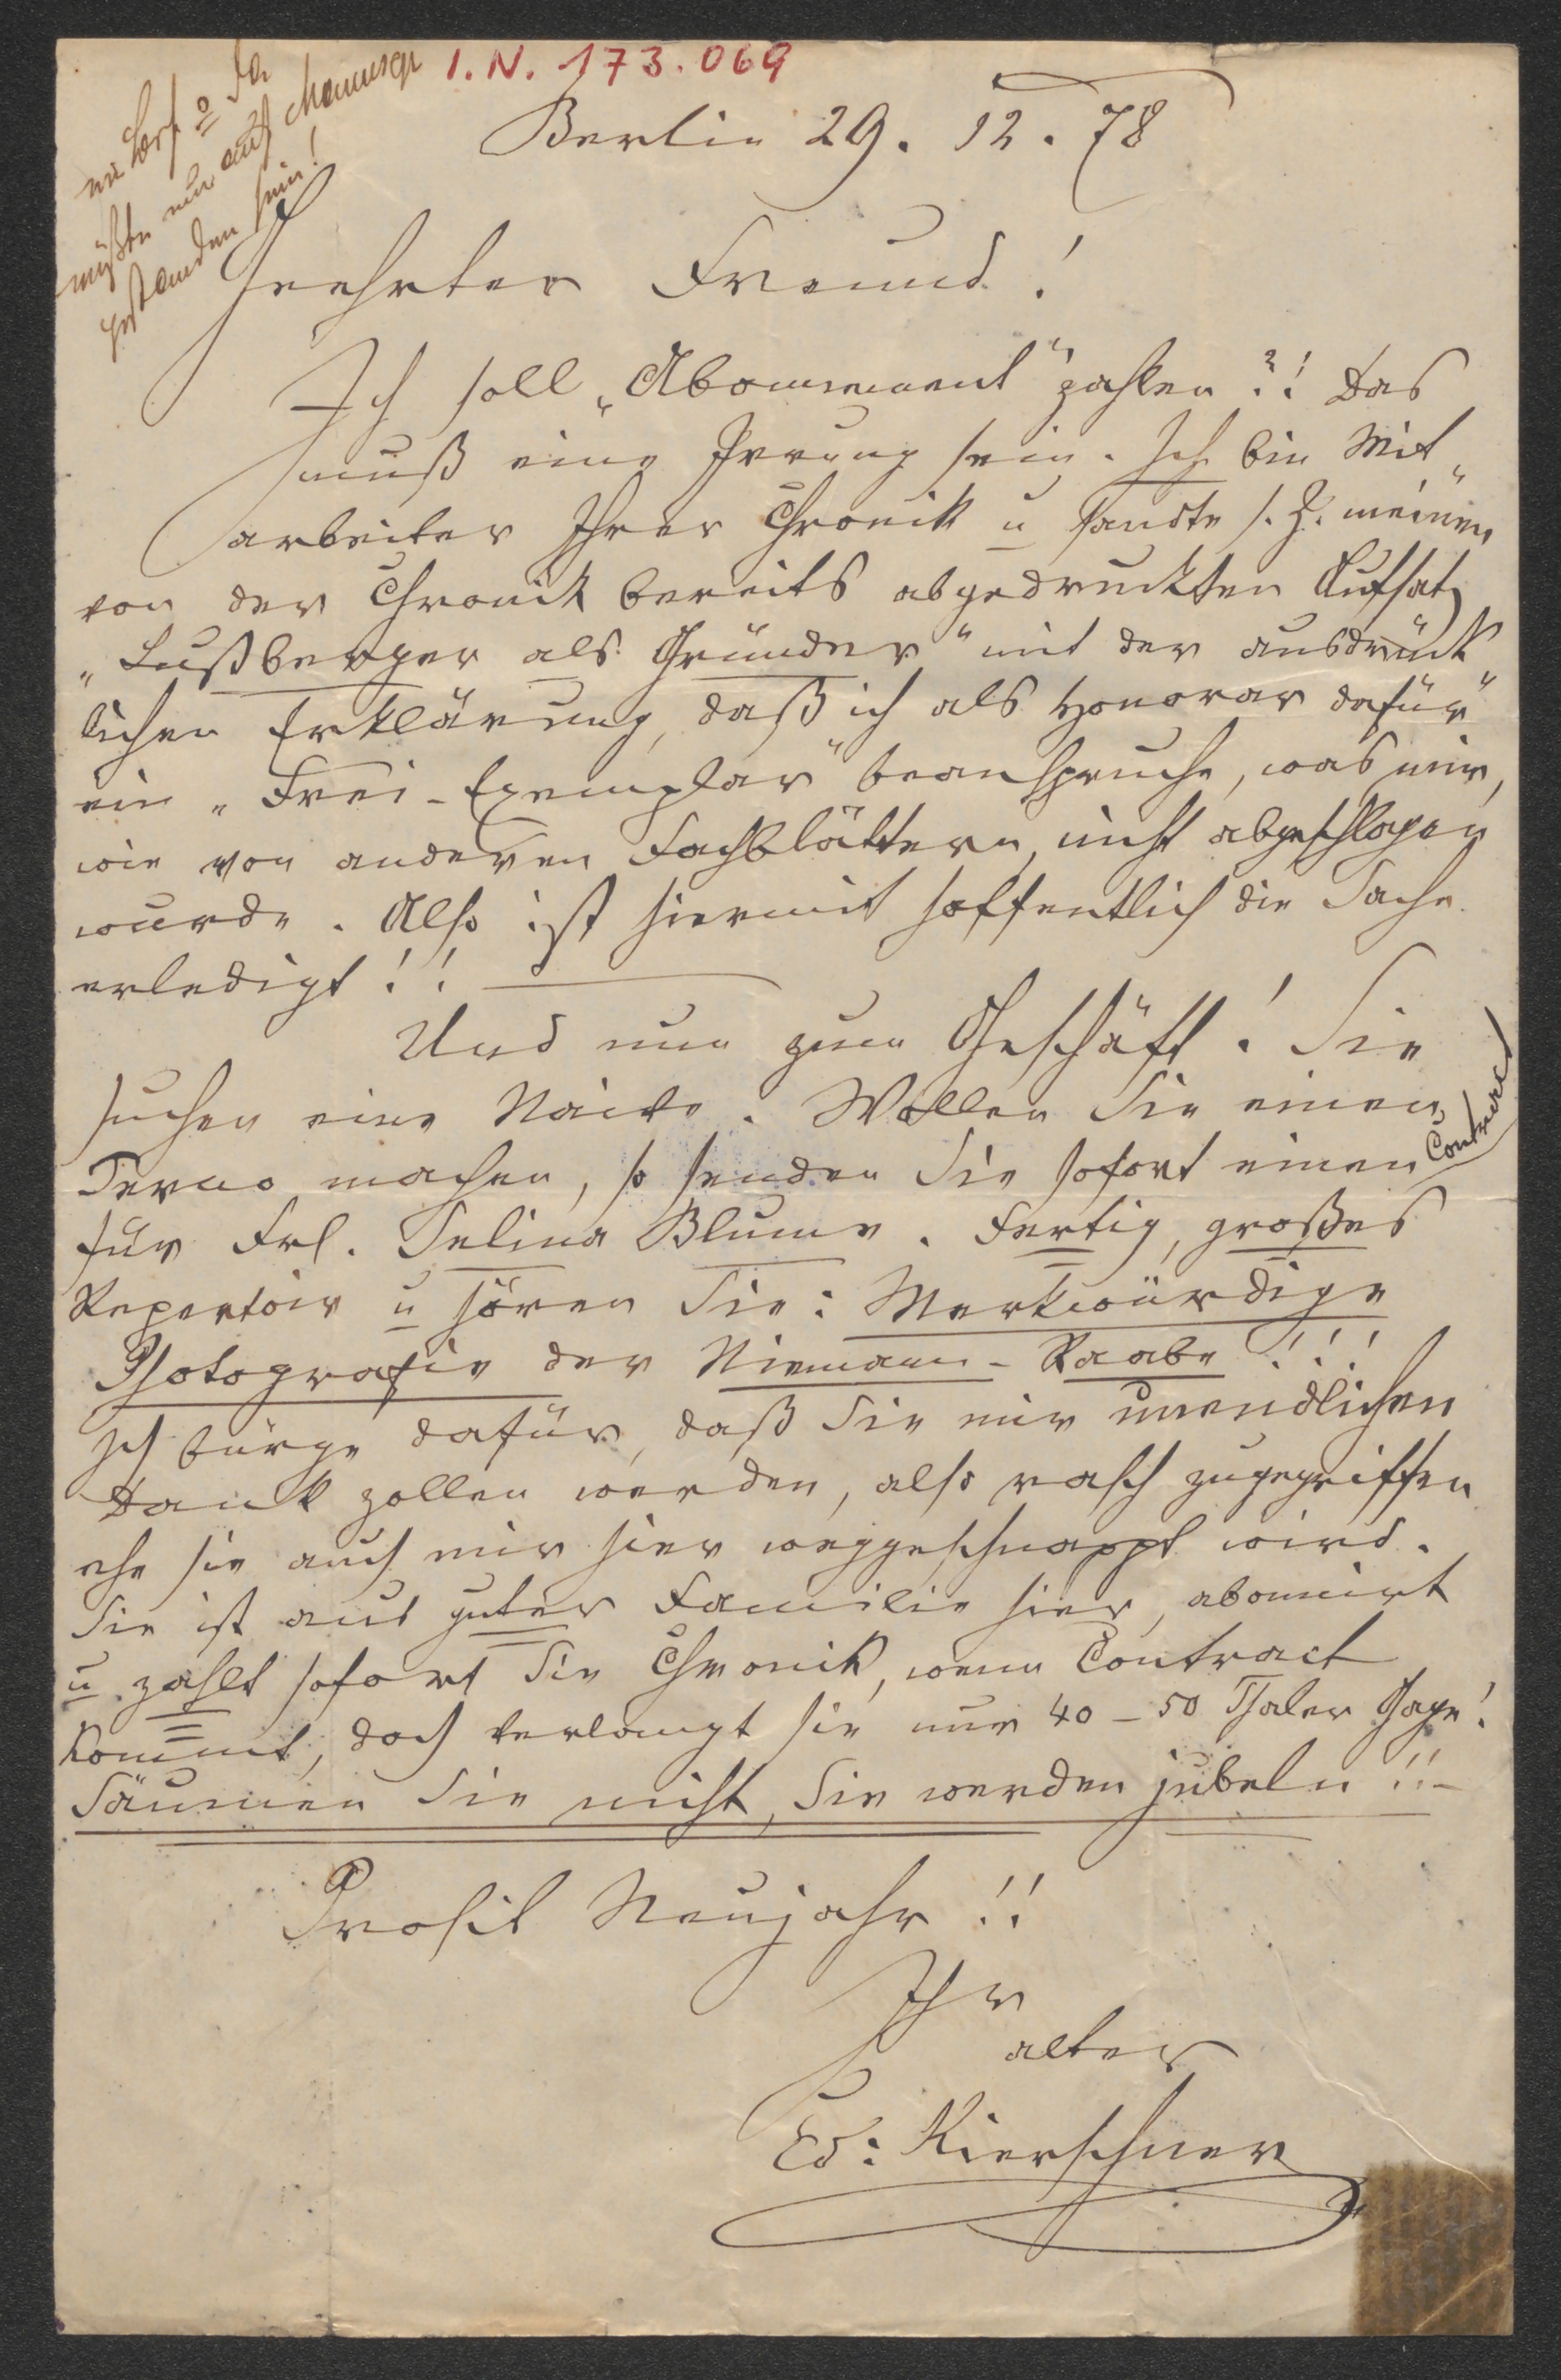 I.N. 173.069
müßte nur auf Manuscr
gestanden sein!
Berlin 29. 12. 78
Geehrter Freund!
Ich soll „Abonnement" zahlen?! Das
muß eine Irrung sein. Ich bin Mit„
arbeiter Ihrer Chronik u sandte s. Z. meinen
von der Chronik bereits abgedruckten Aufsatz
„Lußberger als Gründer" mit der ausdrück„
lichen Erklärung, daß ich als Honorar dafür
ein „Frei-Exemplar" beanspruche, was mir,
wie von anderen Fachblättern, nicht abgeschlagen
wurde. Also ist hiermit hoffentlich die Sache
erledigt!! —
Und nun zum Geschäft! Sie
suchen eine Naive. Wollen Sie einen
Terno machen, so senden Sie sofort einen Contract
für Frl. Selina Blume. Fertig, großes
Repertoir u hören Sie: Merkwürdige
Photografie der Niemann-Raabe!!!
Ich bürge dafür, daß Sie mir unendlichen
Dank zollen werden, also rasch zugegriffen
ehe sie auch mir hier weggeschnappt wird.
Sie ist aus guter Familie hier, abonnirt
u zahlt sofort die Chronik, wenn Contract
kommt, doch verlangt sie nur 40–50 Thaler Gage!
Säumen Sie nicht, Sie werden jubeln!! –
Prosit Neujahr!!
Ihr
alter
Ed: Kierschner